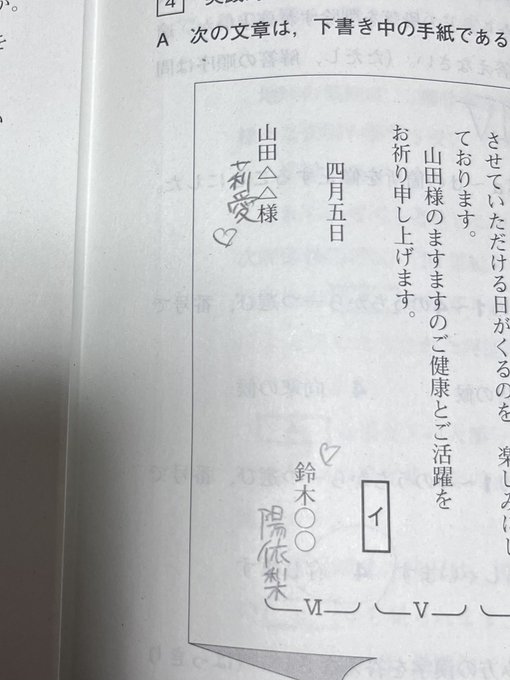 4
A 次の文章は，下書き中の手紙である
させていただける日がくるのを、楽しみにし
ております。
山田様のますますのご健康とご活躍を
お祈り申し上げます。
イ
四月五日
鈴木○○
陽依梨♡
山田△△様
莉愛♡
Ⅴ
Ⅵ